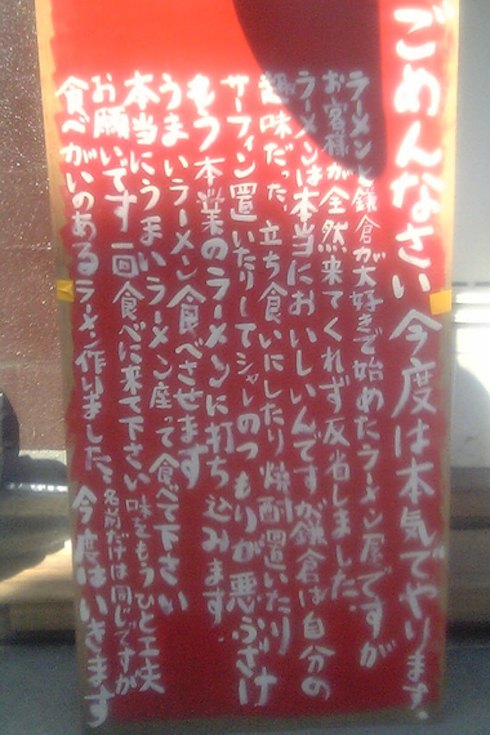 ごめんなさい今度は本気でやります。
ラーメンと鎌倉が大好きで始めたラーメン屋ですが
お客様が全然来てくれず反省しました。
ラーメンは本当においしいんですが鎌倉は自分の
趣味だった、立ち食いにしたり焼酎置いたり
サーフィン置いたりしてシャレのつもりが悪ふざけ
もう本業のラーメンに打ち込みます
うまいラーメン食べさせます
本当にうまいラーメン座って食べて下さい
お願いです一回食べに来て下さい味をもうひと工夫
食べがいのあるラーメン作りました。名前だけは同じですが
今度はいきます